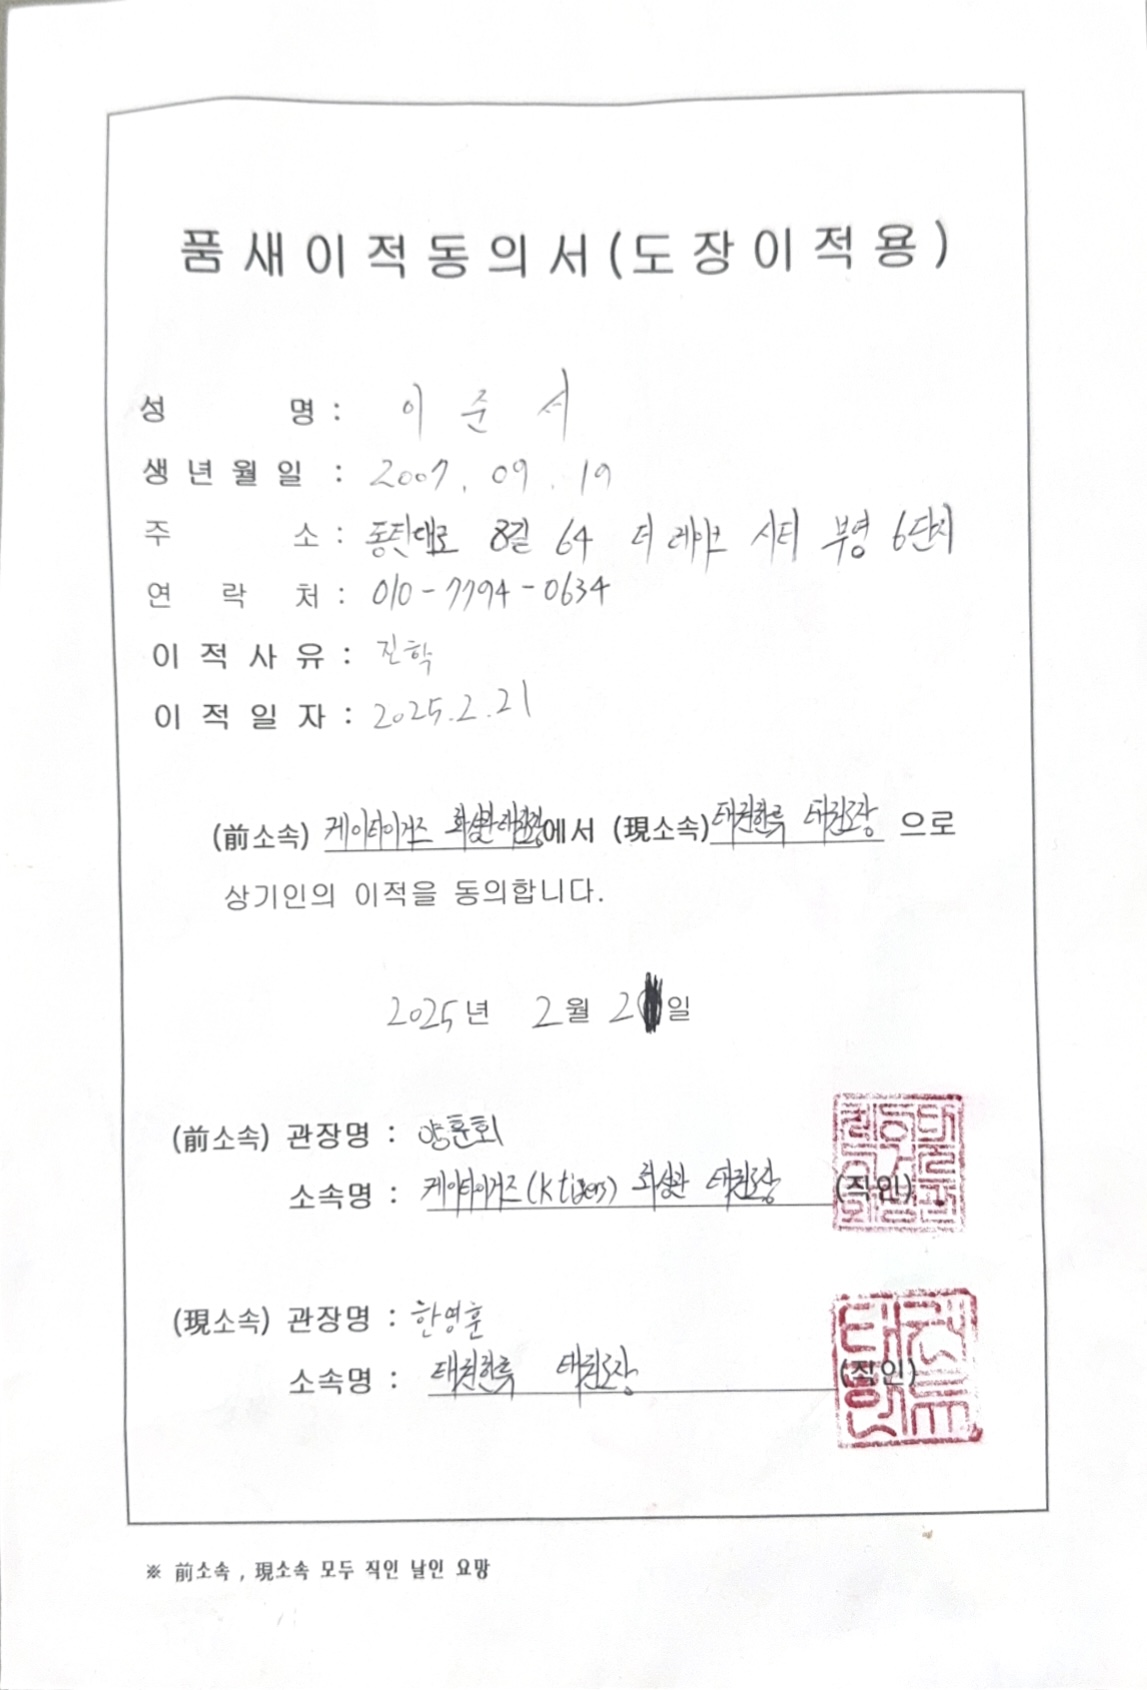 품새이적동의서(도장이적용)
성 명 : 이준서
생년월일 : 2007. 09. 19
주 소 : 동탄대로 8길 64 더 레이크 시티 부영 6단지
연 락 처 : 010-7794-0634
이적사유 : 진학
이적일자 : 2025.2.21
(前소속) 케이타이거즈 화성관 태권도장에서 (現소속) 태권한류 태권도장 으로
상기인의 이적을 동의합니다.
2025년 2월 2 일
(前소속) 관장명 : 양훈회
소속명 : 케이타이거즈(K tigers) 화성관 태권도장 (직인)
(現소속) 관장명 : 한영훈
소속명 : 태권한류 태권도장 (직인)
태권한류
※ 前소속 , 現소속 모두 직인 날인 요망